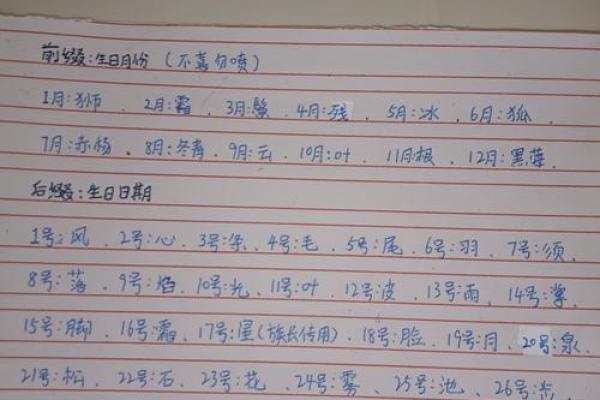 前缀:生日月份(不喜勿喷)
1月:狮、2月:霜、3月:鬃、4月:残、5月:冰、6月:狐、
7月:赤杨、8月:冬青、9月:云、10月:叶、11月:根、12月:黑莓、
后缀:生日日期
1号:风、2号:心、3号:条、4号:毛、5号:尾、6号:羽、7号:须、
8号:落、9号:焰、10号:光、11号:叶、12号:皮、13号:雨、14号:掌、
15号:脚、16号:霜、17号:星(族长传用)、18号:脸、19号:月、20号:泉、
21号:松、22号:石、23号:花、24号:雾、25号:池、26号: